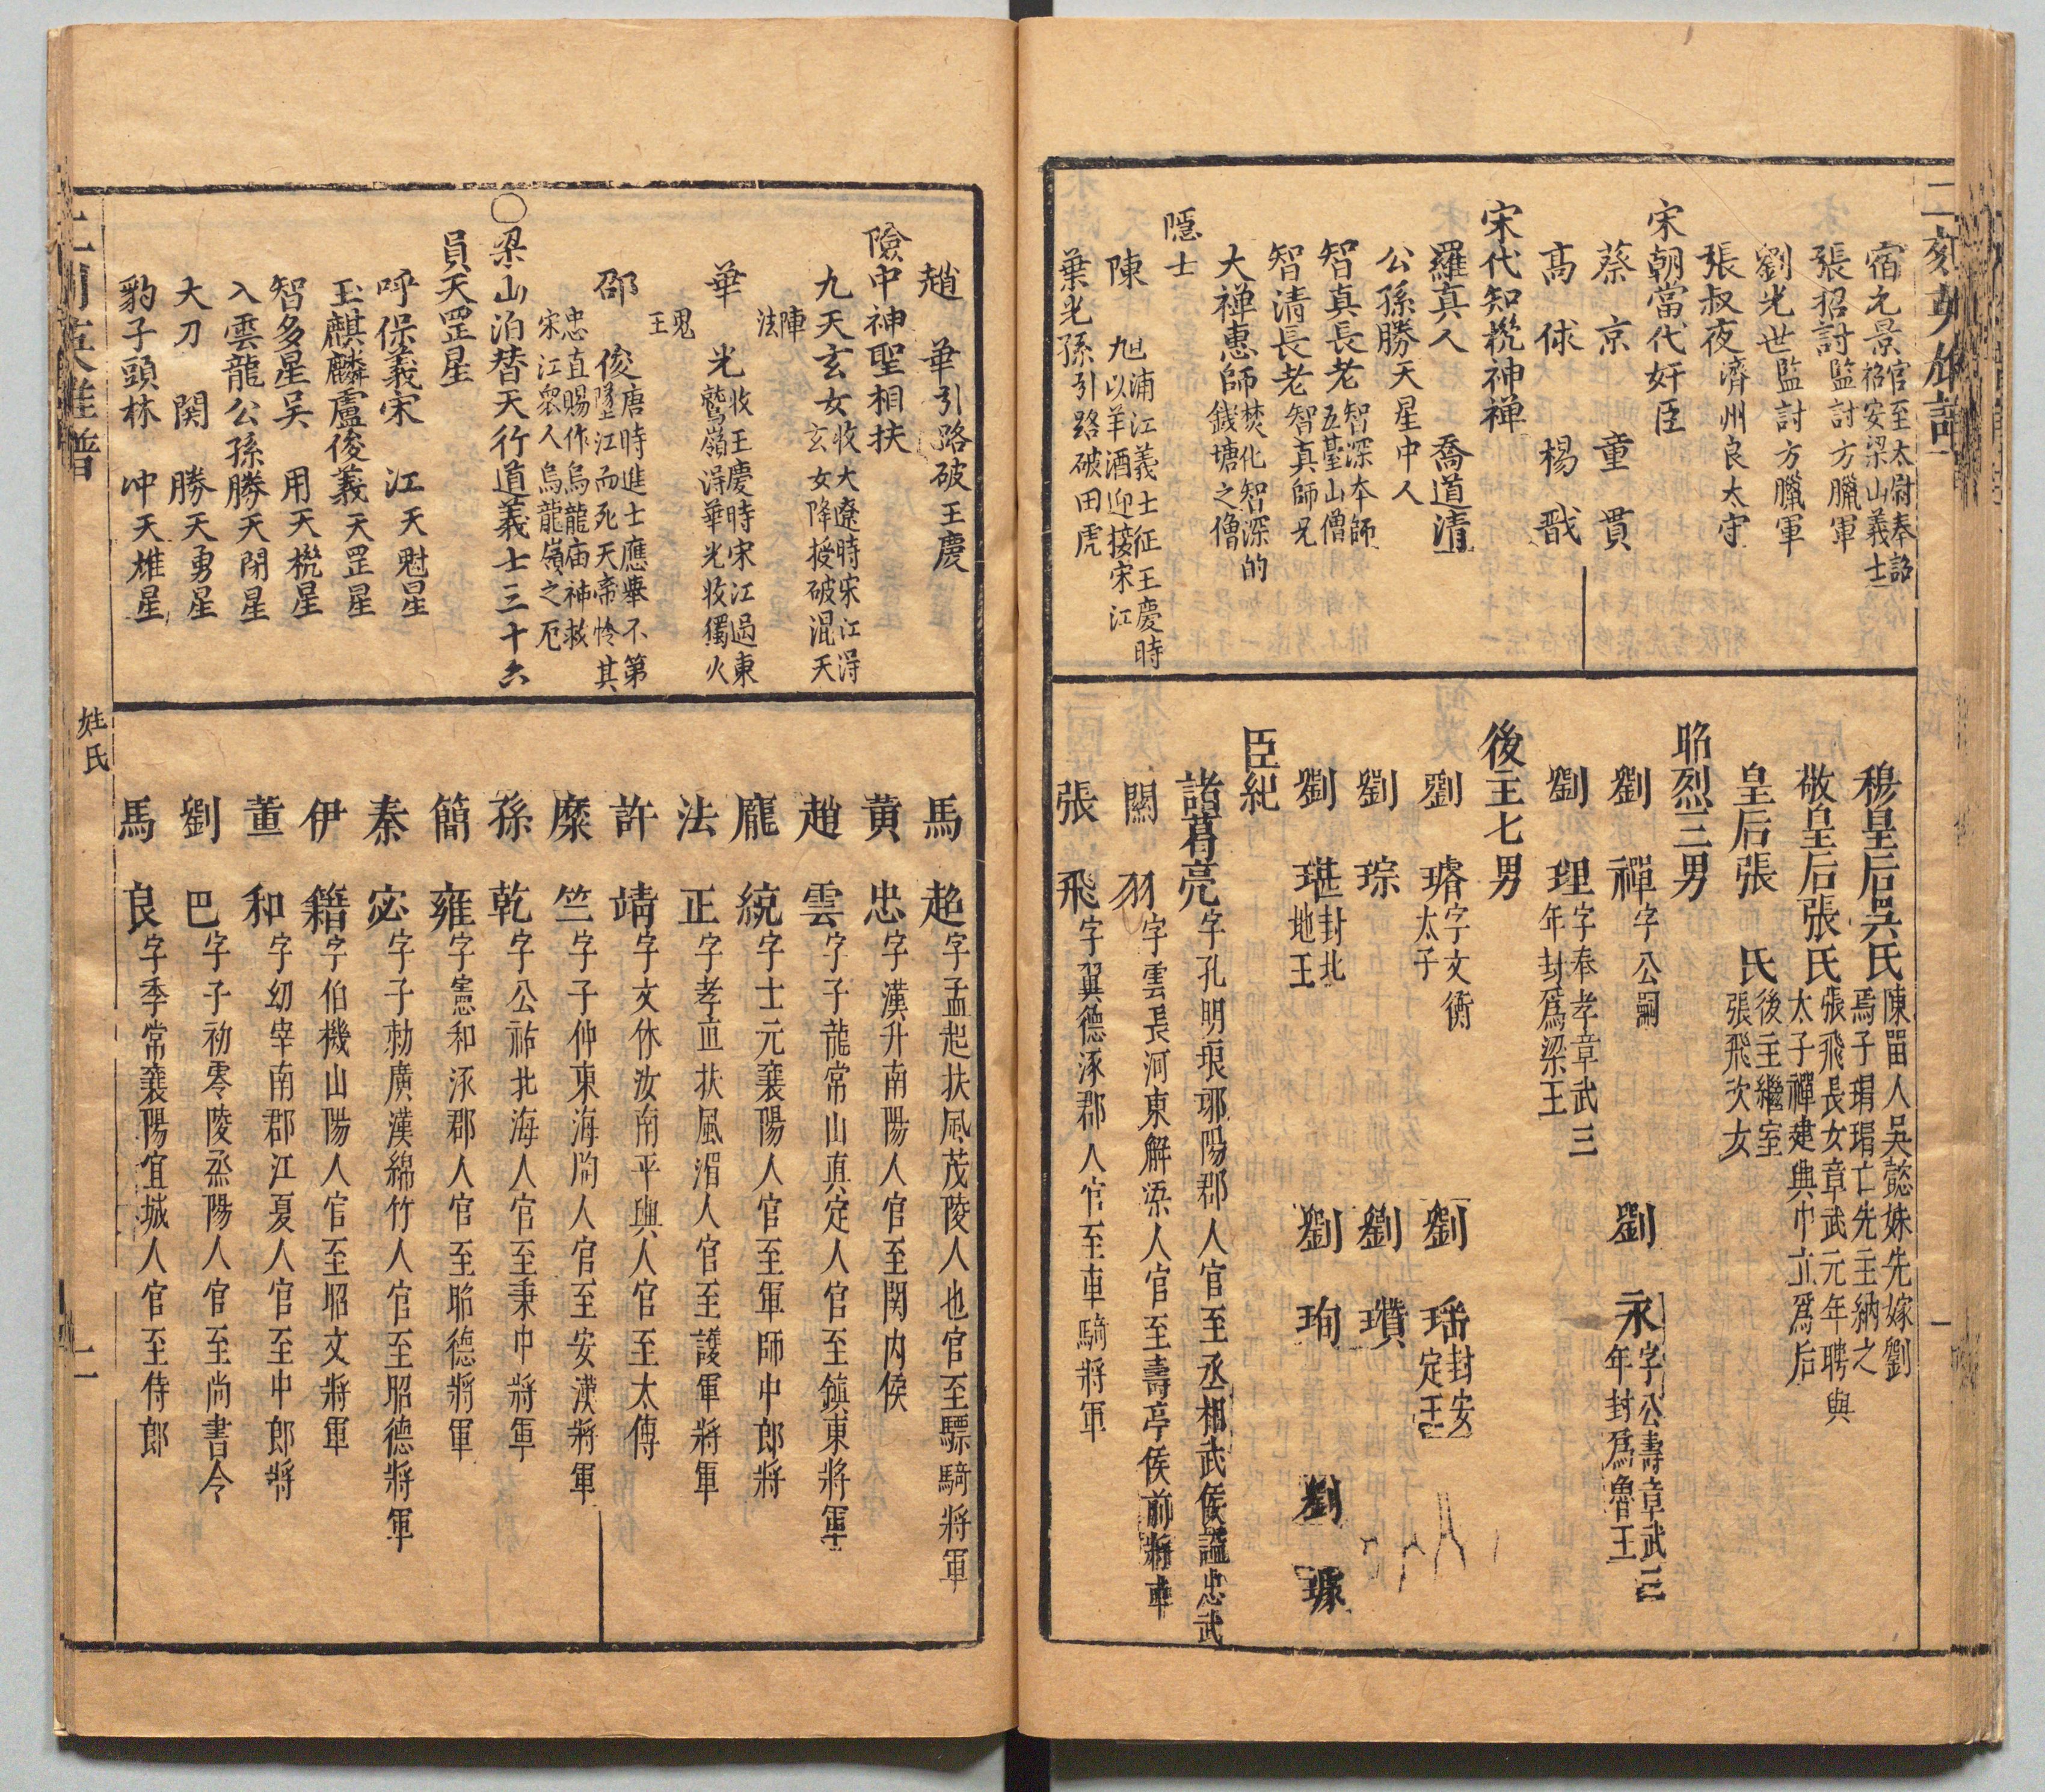 宿元景官至太尉奉詔招安梁山義士
張招討監討方臘軍
劉光世監討方臘軍
張叔夜濟州良太守
宋朝當代奸臣
蔡京 童貫
高俅 楊戩
宋代知機神禅
羅真人 喬道清
公孫勝天星中人
智真長老智深本師五臺山僧
智清長老智真師兄
大禅惠師焚化智深的錢塘之僧
隱士
陳旭浦江義士征王慶時以羊酒迎接宋江
葉光孫引路破田虎
穆皇后吳氏陳留人吳懿妹先嫁劉焉子瑁瑁亡先主納之
敬皇后張氏張飛長女章武元年聘與太子禪建興中立爲后
皇后張氏後主繼室張飛次女
昭烈三男
劉禪字公嗣 劉永字公壽章武三年封爲魯王
劉理字奉孝章武三年封爲梁王
後主七男
劉璿字文衡太子 劉瑶封安定王
劉琮 劉瓚
劉琪封北地王 劉珣 劉璩
臣紀
諸葛亮字孔明琅琊陽郡人官至丞相武侯謚忠武
關羽字雲長河東解梁人官至壽亭侯前將軍
張飛字翼德涿郡人官至車騎將軍
二刻英雄譜
一
趙華引路破王慶
險中神聖相扶
九天玄女收大遼時宋江得玄女降授破混天陣法
華光收王慶時宋江過東鷲嶺得華光收獨火鬼王
邵俊唐時進士應舉不第墜江而死天帝怜其忠直賜作烏龍庙神救宋江衆人烏龍嶺之厄
○梁山泊替天行道義士三十六
員天罡星
呼保義宋江天魁星
玉麒麟盧俊義天罡星
智多星吳用天機星
入雲龍公孫勝天閒星
大刀関勝天勇星
豹子頭林冲天雄星
馬超字孟起扶風茂陵人也官至驃騎將軍
黄忠字漢升南陽人官至関內侯
趙雲字子龍常山真定人官至鎮東將軍
龐統字士元襄陽人官至軍師中郎將
法正字孝直扶風湄人官至護軍將軍
許靖字文休汝南平輿人官至太傅
糜竺字子仲東海朐人官至安漢將軍
孫乾字公祐北海人官至秉中將軍
簡雍字憲和涿郡人官至昭德將軍
秦宓字子勅廣漢綿竹人官至昭德將軍
伊籍字伯機山陽人官至昭文將軍
董和字幼宰南郡江夏人官至中郎將
劉巴字子初零陵烝陽人官至尚書令
馬良字季常襄陽宜城人官至侍郎
二刻英雄譜
姓氏
二